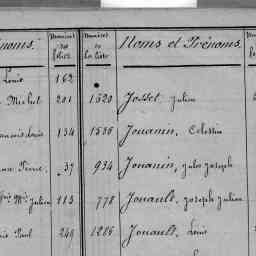 énoms. Numéros des folios Numéros de la Liste Noms et Prénoms.
Louis 162
Michel 201 1520 Josset, Julien
ançois Louis 134 1536 Jouanin, Célestin
Pierre 37 934 Jouanin, Jules Joseph
Mie Julien 113 778 Jouault, Joseph Julien
Paul 249 1286 Jouault, Louis